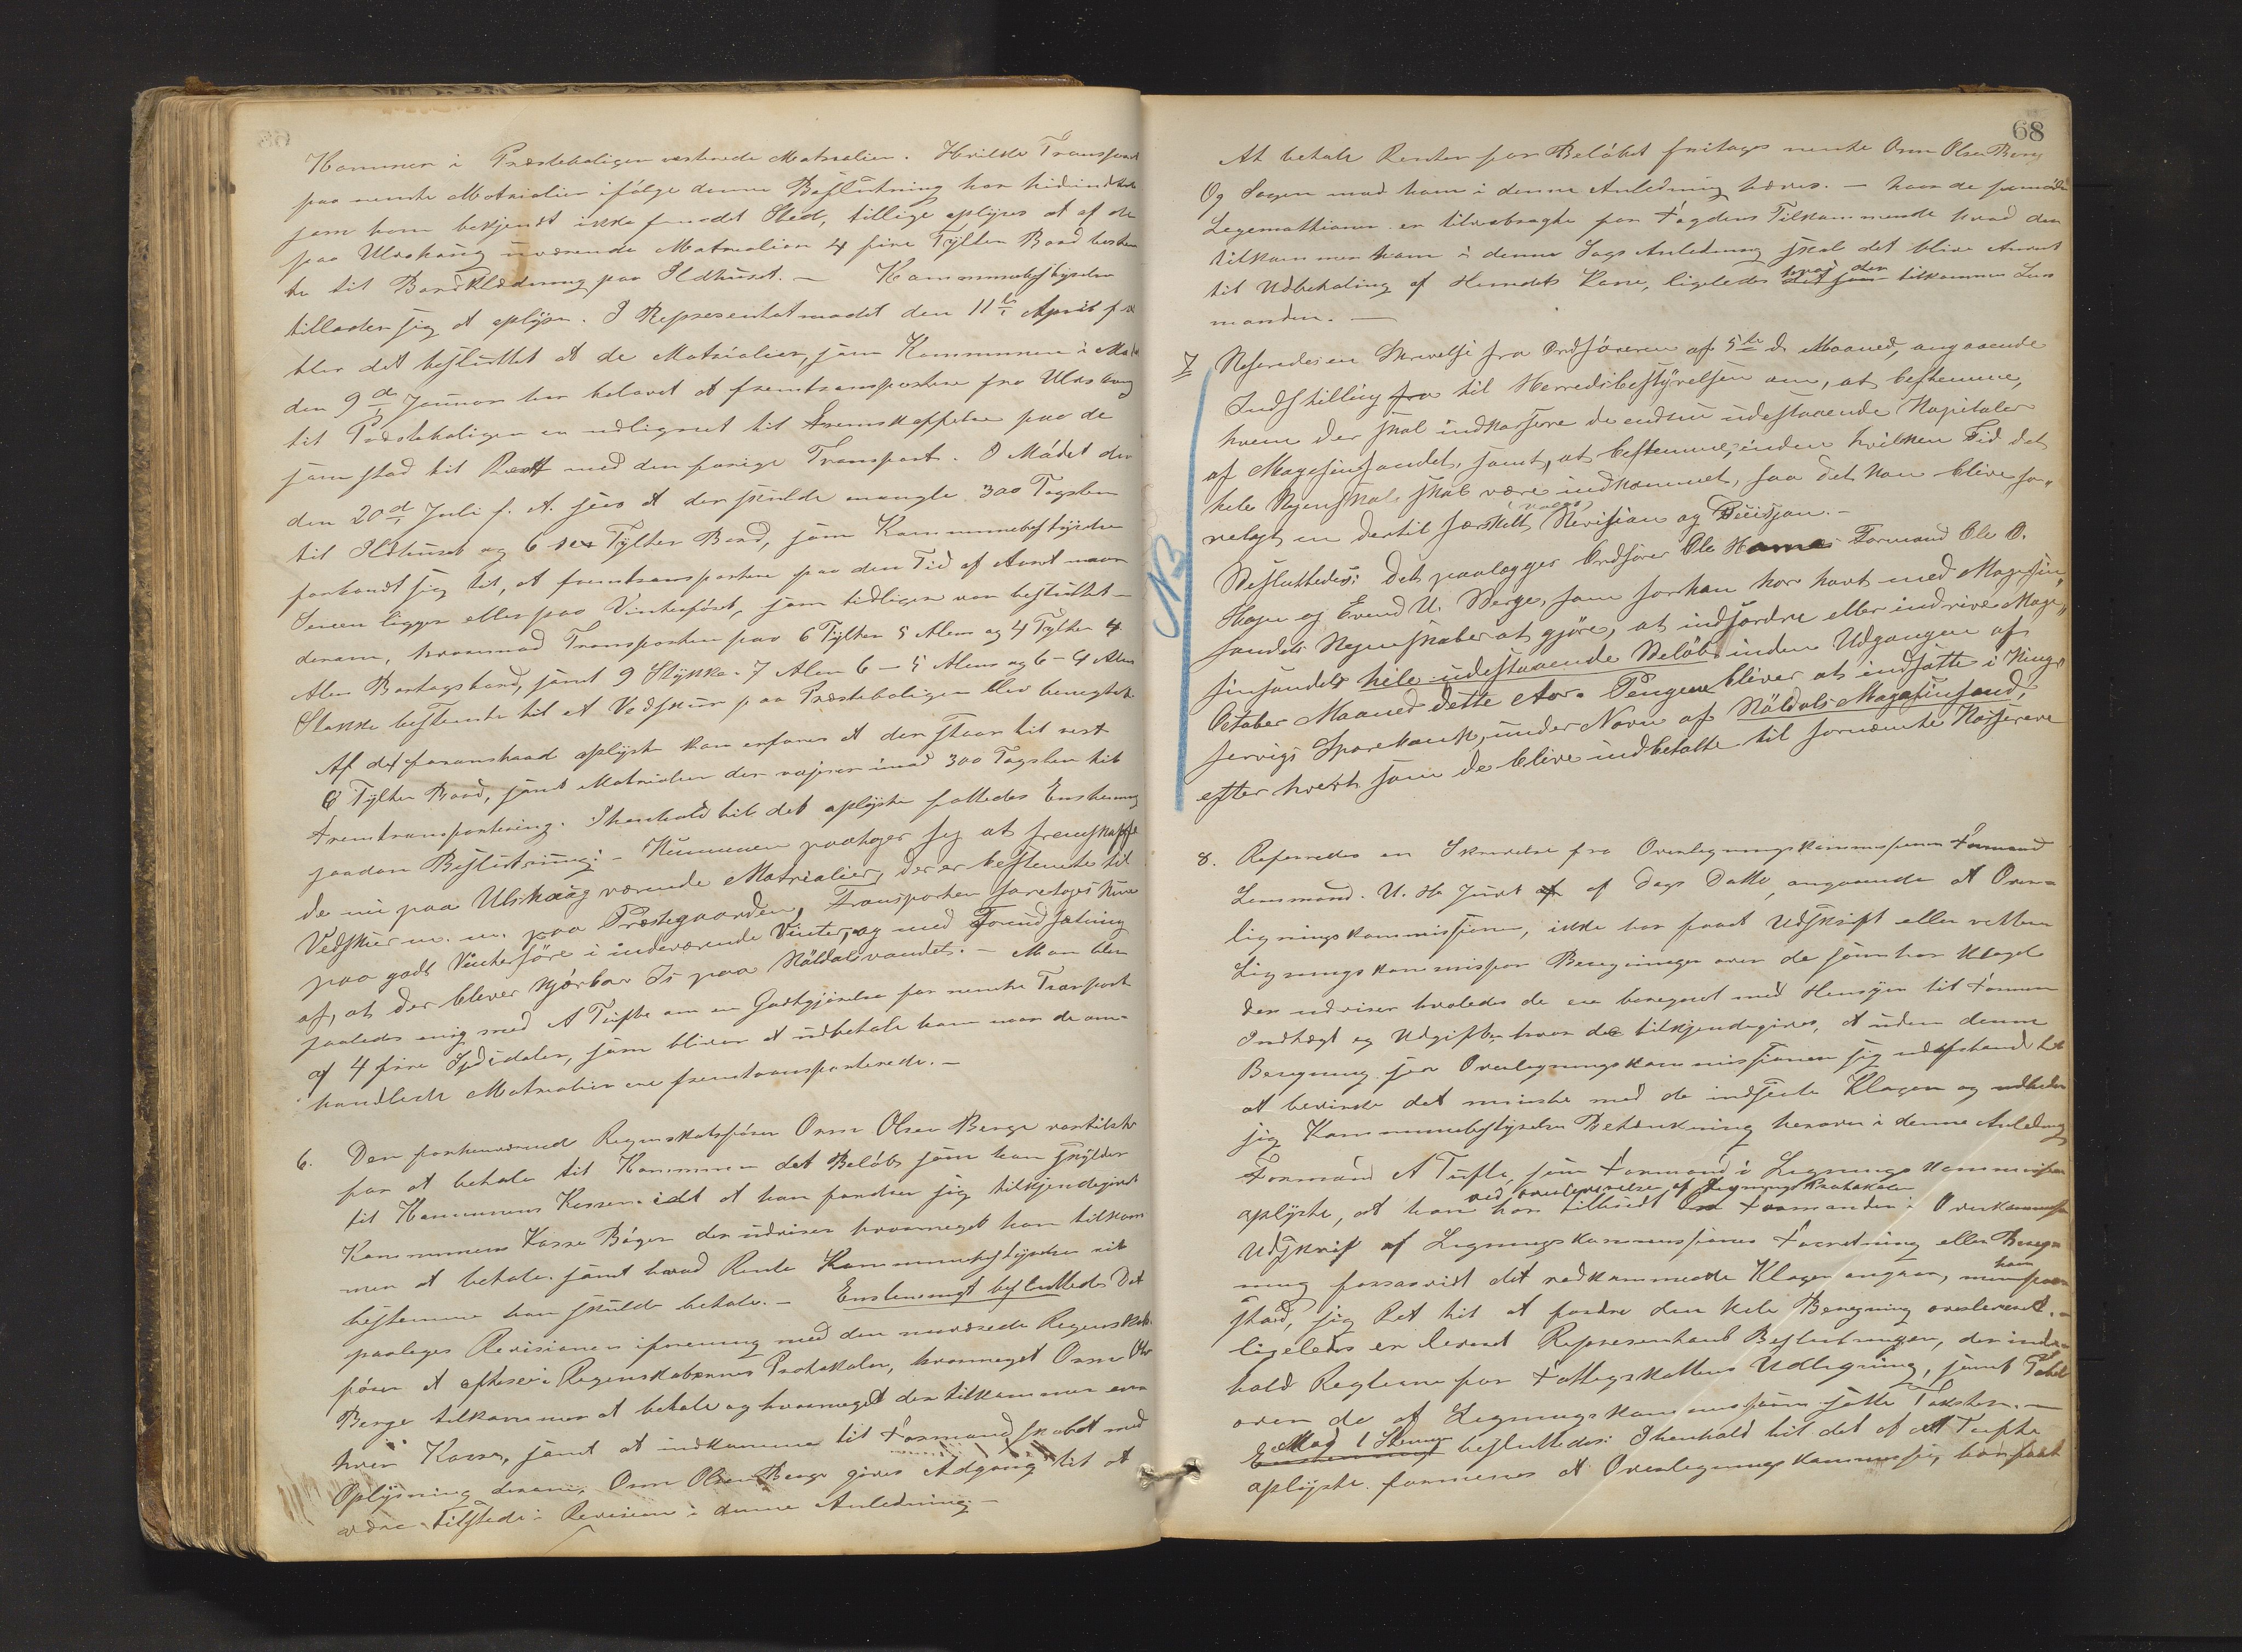 Kommunen i Præsteboligen værende Matrialier. Hvilke Transport
paa nemte Matrialier ifølge denne Beslutning har hidindtil
som bem bekjendt ikke fundet Sted, tillige oplyses at af de
paa Ulvshaug værende Matrealier 4 fire Tylter Bord bestem
te til Bordklædning paa Ildhuset. — Kommunebestyrelsen
tillader sig at oplyse. I Representatmødet den 11te April f. A
blev det besluttet at de Matrialier, som Kommunen i Mø
den 9de Januar har belovet at fremtransportere fra Ulvshaug
til Præsteboligen er udlignet til Fremskaffelse paa de
som stod til Rest med den forige Transport. I Mødet den
den 20de Juli f. A. sees at der skulde mangle 300 Tagsten
til Ildhuset og 6 sex Tylter Bord, som Kommunebestyrelsen
forbandt sig til, at fremtransportere paa den Tid af Aaret naar
Sneen ligger eller paa Vinterføret, som tidligere var besluttet
derom, hvorimod Transporten paa 6 Tylter 5 Alens og 4 Tylter 4
Alen Bortagsbord, samt 9 Stykker 7 Alen 6 — 5 Alens og 6 — 4 Alens
Stokke bestemte til et Vedskur paa Præsteboligen blev benegtet
Af det foranstaad oplyste kan erfares at der staar til rest
6 Tylter Bord, samt Matrialier der vejner imod 300 Tagsten til
Fremtransportering. I henhold til det oplyste fattedes Enstemmig
saadan Beslutning: — Kummunen paatager sig at fremskaffe
de nu paa Ulvshaug værende Matrialier, der er bestemte til
Vedskur m. m. paa Præstegaarden. Transporten foretages kun
paa godt Vinterføre i indeværende Vinter, og med Forudsætning
af, at der bliver Kjørbar Is paa Röldalsvandet. — Man blev
saaledes enig med A Tufte om en Godtgjørelse for nemte Transport
af 4 fire Spdidaler, som bliver at udbetale ham naar de om-
handlede Matrialier ere fremtransporterede. —
6. Den forhenværend Regnskabsfører Orm Olsen Berge var tilstede
for at betale til Kommunen det Beløb som han skylder
til Kommunens Kassen idet at han fordrer sig tilkjendegivet
Kommunens Kasse Bøger der udviser hvormeget han tilkom
mer at betale, samt hvad Rente Kommunebestyrelsen vil
bestemme han skulde betale. — Enstemmigt besluttedes Det
paalegges Revisionen iforening med den nuværede Regnskab-
fører at eftersee i Regnskabernes Protokoler, hvormeget Orm Ols
Berge tilkommer at betale og hvormeget der tilkommer en
hver Kasse, samt at indkomme til Formandskabet med
Oplysning derom. Orm Olsen Berge gives Adgang til at
være tilstede i Revision i denne Anledning —
68
At betale Renter for Beløbet fritages nemte Orm Olsen Berg
Og Sagen mod ham i denne Anledning hæves. — hvor de
Legemattioner er tilvebragte for Fogdens Tilkommende hvad den
tilkommer ham i denne Sags Anledning skal det blive Anvist
til Udbetaling af Herredets Kasse, ligeledes hvad der tilkommer Lens
manden. —
7 Refereredes en Skrivelse fra Ordføreren af 5te ds Maaned, angaaende
Indstilling fra til Herredsbestyrelsen om, at bestemme,
hvem der skal indkassere de endnu udestaaende Kapitaler
af Magasinfondet, samt, at bestemme, inden hvilken Tid det
hele Regnskab skal være indkommet, saa det kan blive fore„
relagt en dertil særskilt (valgt) Revision og Desisjon. —
NB
Besluttedes: Det paalægges Ordfører Ole Hamre Formand Ole O.
Hagen og Evend U. Berge, som forhen har havt med Magasin„
fondets Regnskaber at gjøre, at indfordre eller indrive Maga„
sinfondets hele udestaaende Beløb inden Udgangen af
October Maaned dette Aar. Pengene bliver at indsætte i King„
servigs Sparebank, under Navn af Röldals Magasinfond,
efter hvert som de blive indbetalte til fornemte Kasserere
8. Refereredes en Skrivelse fra Overlegningskommissionens Formand
Lensmand U. H. Juvet af Dags Datto, angaaende at Over-
ligningskommissionen, ikke har faaet Udskrift eller rettere
Ligningskommission Beregninger over de som har klaget
der udviser hvorledes de ere beregnet med Hensyn til Formue
Indtægt og Udgifter hvor de tilkjendegives, at uden denne
Beregning ser Overlegningskommissionen sig ude af stand til
at bevirke det minste med de indsente Klager og udbeder
sig Kommunebestyrelsens Betænkning herover i denne Anledning
Formand A Tufte, som Formand i Legnings kommission
ved overleverelse af Legnings Protokolen
oplyste, at han har tilbudt Formanden i Overkommissi
Udskrift af Legningskommissionens Forretning eller Bereg-
ning forsaavidt det vedkommende Klager angaar, men han
stod, sig Ret til at fordre den hele Beregning overleveret. —
ligeledes er leveret Representant Beslutningen, der inde-
hold Reglerne for Fattigskattens Udligning, samt Tabel
over de af Legningskommissionen satte Takster. —
Mod 1 Stemme besluttedes: I henhold til det af A Tufte
oplyste formenes at Overlegningskommissio, har faaet